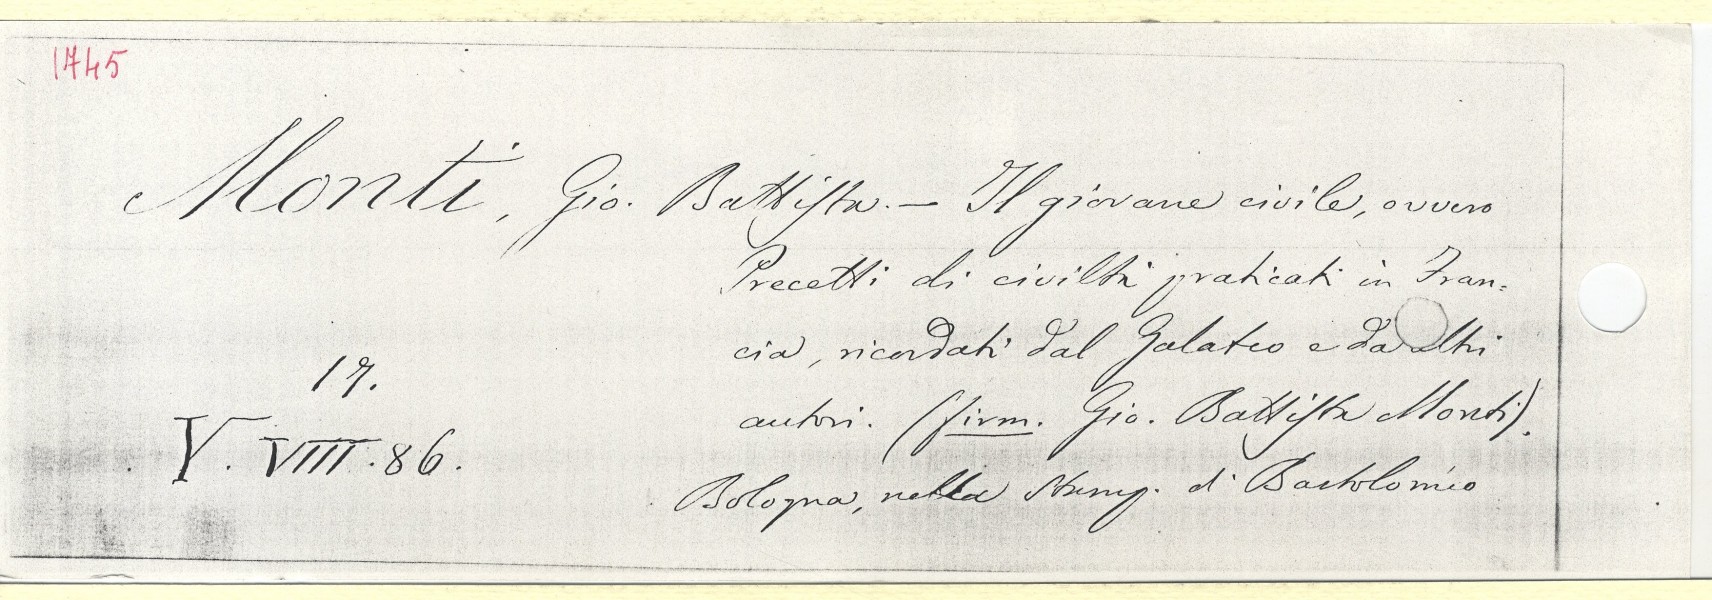 1745
Monti, Gio. Battista. — Il giovane civile, ovvero
Precetti di civiltà praticati in Fran=
cia, ricordati dal Galateo e da altri
autori. (firm. Gio. Battista Monti).
Bologna, nella Stamp. di Bartolomeo
17.
V. VIII. 86.